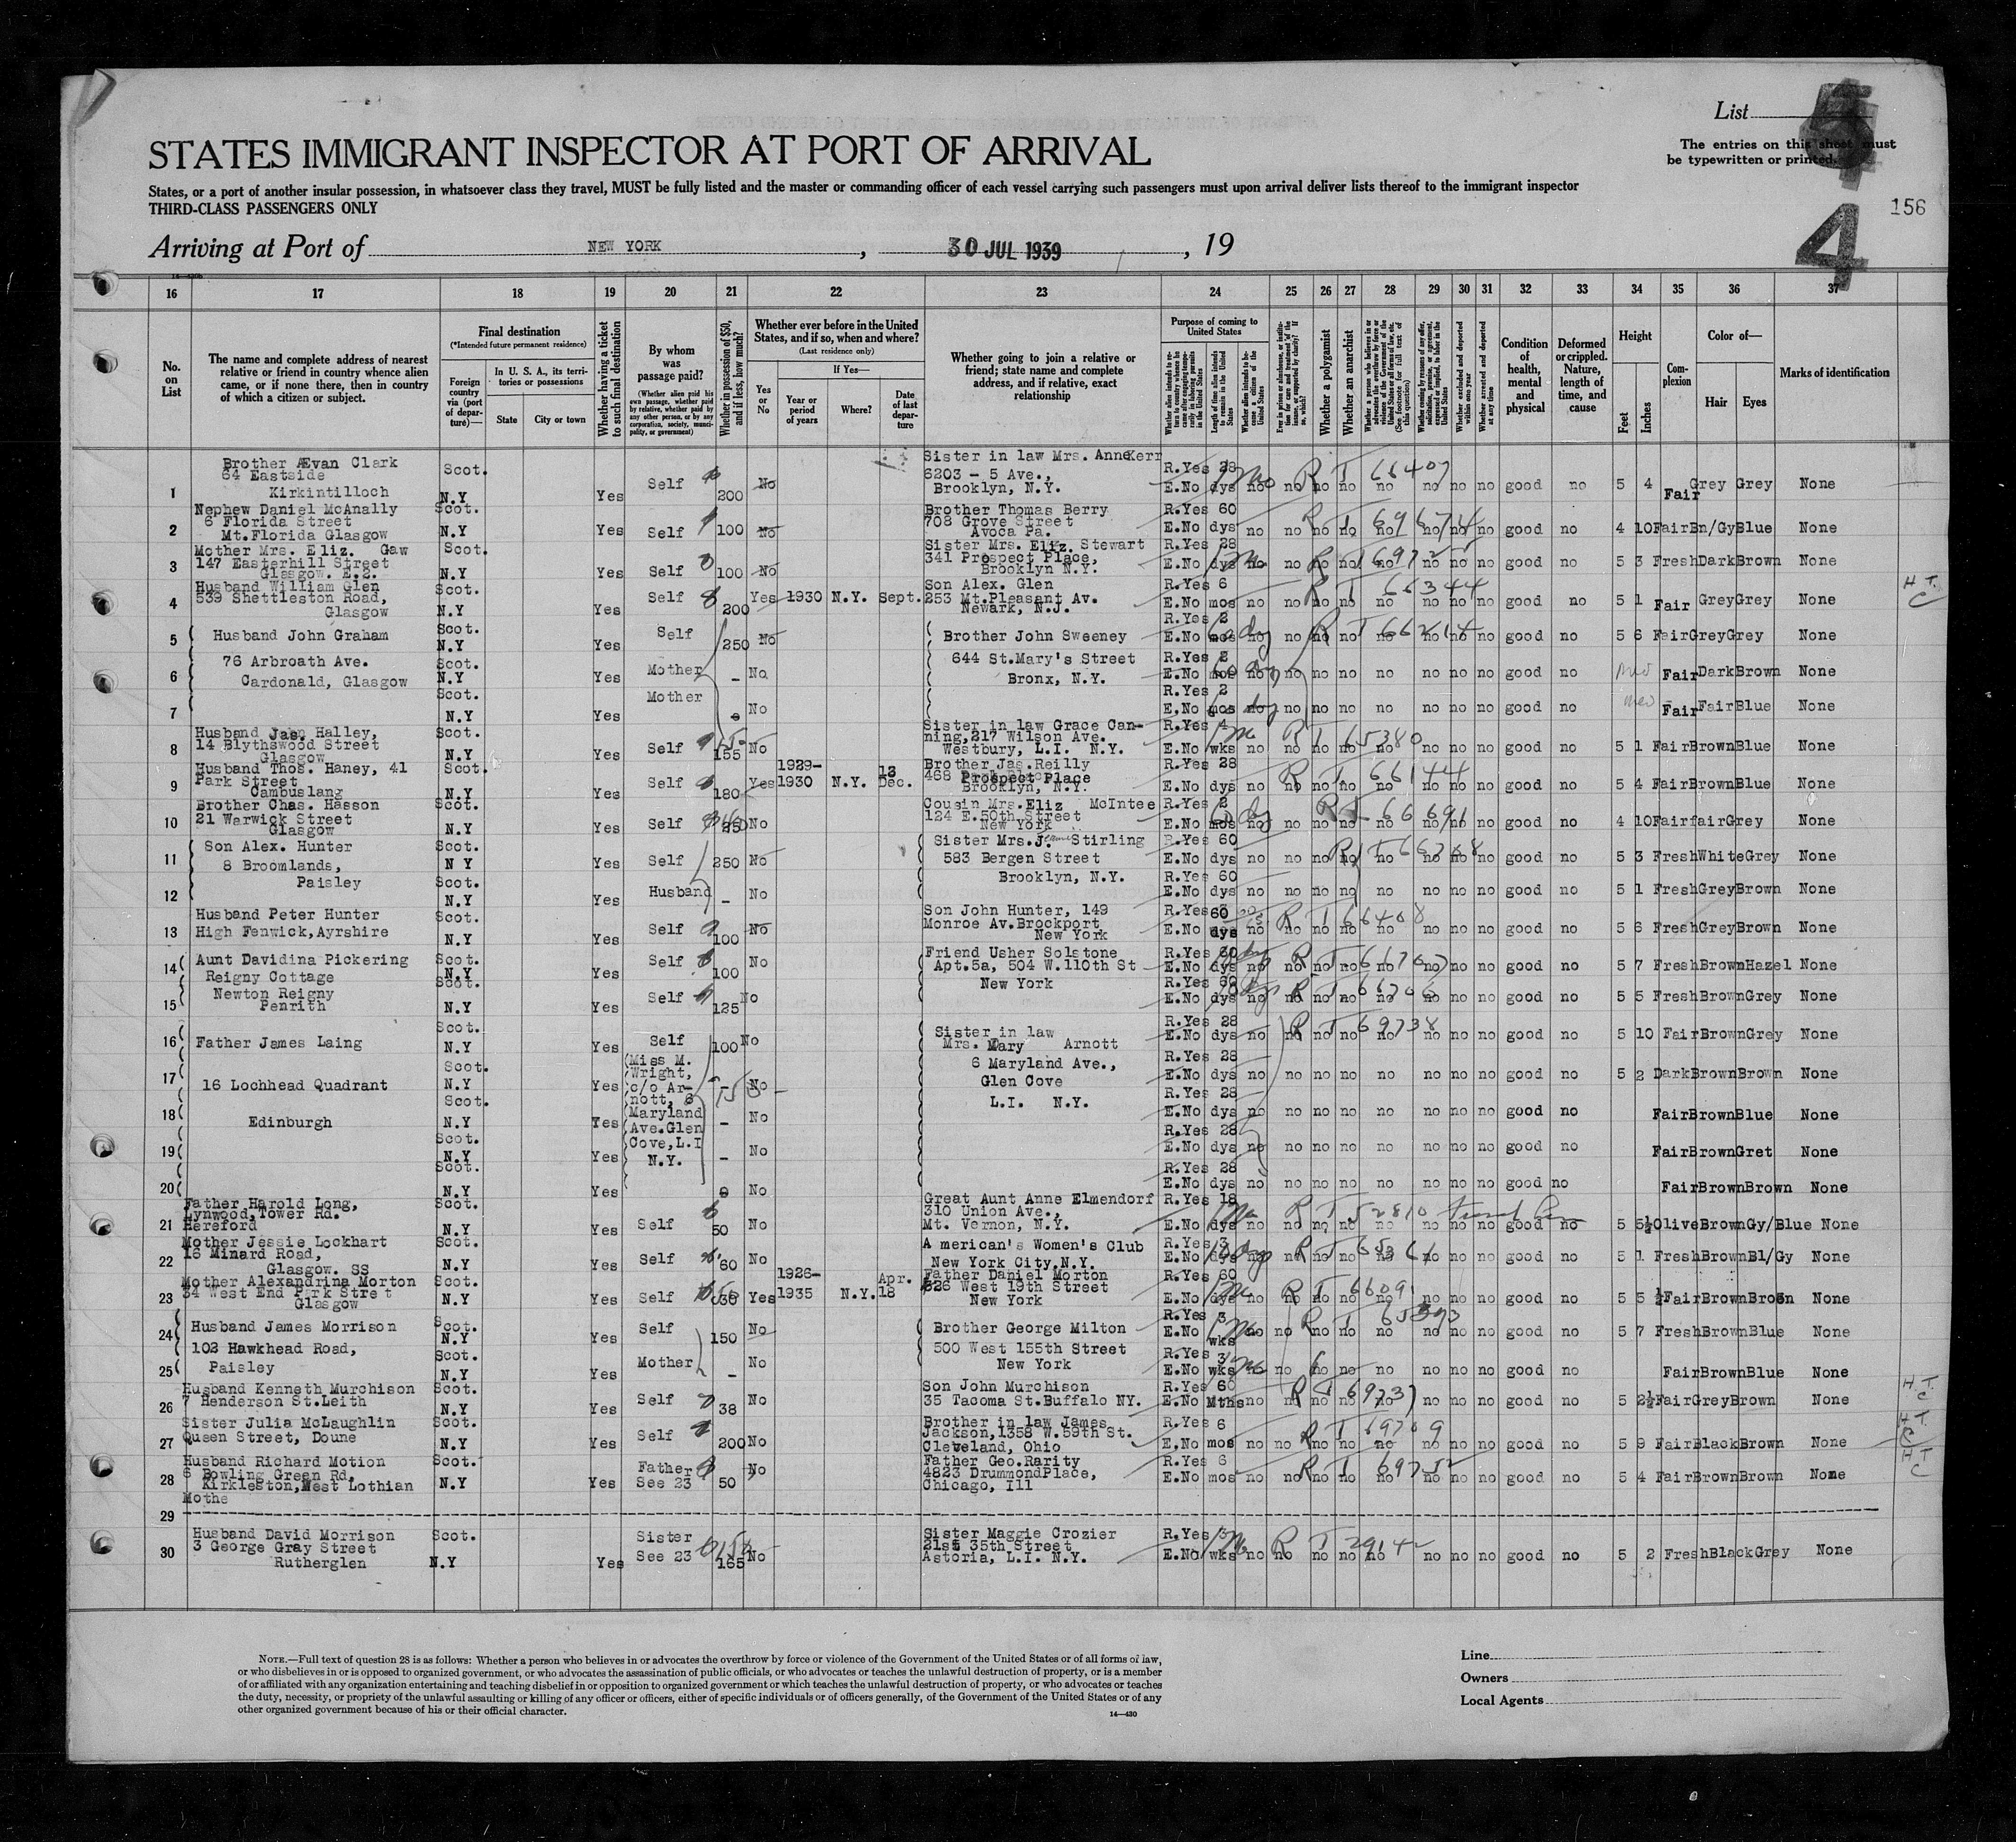 List
The entries on this sheet must
be typewritten or printed.
STATES IMMIGRANT INSPECTOR AT PORT OF ARRIVAL
States, or a port of another insular possession, in whatsoever class they travel, MUST be fully listed and the master or commanding officer of each vessel carrying such passengers must upon arrival deliver lists thereof to the immigrant inspector
THIRD-CLASS PASSENGERS ONLY
4
156
Arriving at Port of NEW YORK, 30 JUL 1939, 19
16 17 18 19 20 21 22 23 24 25 26 27 28 29 30 31 32 33 34 35 36 37
No. on List
The name and complete address of nearest relative or friend in country whence alien came, or if none there, then in country of which a citizen or subject.
Final destination
(*Intended future permanent residence)
Foreign country via (port of departure)—
In U. S. A., its territories or possessions
State
City or town
Whether having a ticket to such final destination
By whom was passage paid?
(Whether alien paid his own passage, whether paid by relative, whether paid by any other person, or by any corporation, society, municipality, or government)
Whether in possession of $50, and if less, how much?
Whether ever before in the United States, and if so, when and where?
(Last residence only)
If Yes—
Yes or No
Year or period of years
Where?
Date of last departure
Whether going to join a relative or friend; state name and complete address, and if relative, exact relationship
Purpose of coming to United States
Whether a polygamist
Whether an anarchist
Condition of health, mental and physical
Deformed or crippled. Nature, length of time, and cause
Height
Feet
Inches
Complexion
Color of—
Hair
Eyes
Marks of identification
1 Brother Ævan Clark 64 Eastside Kirkintilloch Scot. N.Y Yes Self 200 No Sister in law Mrs. Anne Kerr 6203 - 5 Ave., Brooklyn, N.Y. R.Yes 28 E.No dys no no no no no no no no good no 5 4 Fair Grey Grey None
R T 66407
2 Nephew Daniel McAnally 6 Florida Street Mt.Florida Glasgow Scot. N.Y Yes Self 100 No Brother Thomas Berry 708 Grove Street Avoca Pa. R.Yes 60 E.No dys no no no no no no no no good no 4 10 Fair Bn/Gy Blue None
3 Mother Mrs. Eliz. Gaw 147 Easterhill Street Glasgow. E.2. Scot. N.Y Yes Self 100 No Sister Mrs. Eliz. Stewart 341 Prospect Place, Brooklyn N.Y. R.Yes 28 E.No dys no no no no no no no no good no 5 3 Fresh Dark Brown None
4 Husband William Glen 539 Shettleston Road, Glasgow Scot. N.Y Yes Self 200 Yes 1930 N.Y. Sept. Son Alex. Glen 253 Mt.Pleasant Av. Newark, N.J. R.Yes 6 E.No mos no no no no no no no no good no 5 1 Fair Grey Grey None
R T 66344
5 Husband John Graham Scot. N.Y Yes Self 250 No Brother John Sweeney R.Yes 2 E.No mos no no no no no no no no good no 5 6 Fair Grey Grey None
R T 66214
6 76 Arbroath Ave. Cardonald, Glasgow Scot. N.Y Yes Mother - No 644 St.Mary's Street Bronx, N.Y. R.Yes 2 E.No mos no no no no no no no no good no Fair Dark Brown None
7 Scot. N.Y Yes Mother No R.Yes 2 E.No mos no no no no no no no no good no Fair Fair Blue None
8 Husband Jas. Halley, 14 Blythswood Street Glasgow Scot. N.Y Yes Self 155 No Sister in law Grace Canning, 217 Wilson Ave. Westbury, L.I. N.Y. R.Yes 4 E.No wks no no no no no no no no good no 5 1 Fair Brown Blue None
R T 65380
9 Husband Thos. Haney, 41 Park Street Cambuslang Scot. N.Y Yes Self 180 Yes 1929-1930 N.Y. Dec. Brother Jas. Reilly 468 Prospect Place Brooklyn, N.Y. R.Yes 28 E.No dys no no no no no no no no good no 5 4 Fair Brown Blue None
R T 66144
10 Brother Chas. Hasson 21 Warwick Street Glasgow Scot. N.Y Yes Self No Cousin Mrs. Eliz McIntee 124 E.50th Street New York R.Yes 2 E.No mos no no no no no no no no good no 4 10 Fair fair Grey None
R T 66691
11 Son Alex. Hunter 8 Broomlands, Paisley Scot. N Y Yes Self 250 No Sister Mrs.J. Stirling 583 Bergen Street Brooklyn, N.Y. R.Yes 60 E.No dys no no no no no no no no good no 5 3 Fresh White Grey None
12 Scot. N.Y Yes Husband - No R.Yes 60 E.No dys no no no no no no no no good no 5 1 Fresh Grey Brown None
13 Husband Peter Hunter High Fenwick, Ayrshire Scot. N.Y Yes Self 100 No Son John Hunter, 149 Monroe Av.Brockport New York R.Yes 60 E.No dys no no no no no no no no good no 5 6 Fresh Grey Brown None
R T 66408
14 Aunt Davidina Pickering Reigny Cottage Scot. N.Y Yes Self 100 No Friend Usher Solstone Apt.5a, 504 W.110th St New York R.Yes 60 E.No dys no no no no no no no no good no 5 7 Fresh Brown Hazel None
15 Newton Reigny Penrith Scot. N.Y Yes Self 125 No R.Yes 60 E.No dys no no no no no no no no good no 5 5 Fresh Brown Grey None
R T 66706
16 Father James Laing Scot. N.Y Yes Self 100 No Sister in law Mrs. Mary Arnott R.Yes 28 E.No dys no no no no no no no no good no 5 10 Fair Brown Grey None
R T 69738
17 16 Lochhead Quadrant Scot. N.Y Yes Miss M. Wright, c/o Arnott, 6 Maryland Ave.Glen Cove, L.I N.Y. - No 6 Maryland Ave., Glen Cove L.I. N.Y. R.Yes 28 E.No dys no no no no no no no no good no 5 2 Dark Brown Brown None
18 Edinburgh Scot. N.Y Yes - No R.Yes 28 E.No dys no no no no no no no no good no Fair Brown Blue None
19 Scot. N.Y Yes - No R.Yes 28 E.No dys no no no no no no no no good no Fair Brown Gret None
20 Scot. N.Y Yes No R.Yes 28 E.No dys no no no no no no no no good no Fair Brown Brown None
21 Father Harold Long, Lynwood, Tower Rd. Hereford Scot. N.Y Yes Self 50 No Great Aunt Anne Elmendorf 310 Union Ave., Mt. Vernon, N.Y. R.Yes 18 E.No dys no no no no no no no no good no 5 5½ Olive Brown Gy/Blue None
R T 52810
22 Mother Jessie Lockhart 16 Minard Road, Glasgow. SS Scot. N.Y Yes Self 60 No A merican's Women's Club New York City.N.Y. R.Yes 3 E.No dys no no no no no no no no good no 5 1 Fresh Brown Bl/Gy None
23 Mother Alexandrina Morton 34 West End Park Stre t Glasgow Scot. N.Y Yes Self Yes 1926-1935 N.Y. Apr. 18 Father Daniel Morton 326 West 19th Street New York R.Yes 60 E.No dys no no no no no no no no good no 5 5 ½ Fair Brown None
R T 66091
24 Husband James Morrison 102 Hawkhead Road, Scot. N.Y Yes Self 150 No Brother George Milton 500 West 155th Street New York R.Yes 3 E.No wks no no no no no no no no good no 5 7 Fresh Brown Blue None
25 Paisley Scot. N.Y Yes Mother - No R.Yes 3 E.No wks no no no no no no no good no Fair Brown Blue None
26 Husband Kenneth Murchison 7 Henderson St.Leith Scot. N.Y Yes Self 38 No Son John Murchison 35 Tacoma St.Buffalo NY. R.Yes 60 E.No Mths no no no no no no no no good no 5 2½ Fair Grey Brown None
27 Sister Julia McLaughlin Queen Street, Doune Scot. N.Y Yes Self 200 No Brother in law James Jackson, 1358 W.59th St. Cleveland, Ohio R.Yes 6 E.No mos no no no no no no no no good no 5 9 Fair Black Brown None
R T 69709
28 Husband Richard Motion 6 Bowling Green Rd, Kirkleston, West Lothian Scot. N.Y Yes Father See 23 50 No Father Geo.Rarity 4823 Drummond Place, Chicago, Ill R.Yes 6 E.No mos no no no no no no no no good no 5 4 Fair Brown Brown None
R T 69752
Mothe
29
30 Husband David Morrison 3 George Gray Street Rutherglen Scot. N.Y Yes Sister See 23 165 No Sister Maggie Crozier 35th Street Astoria, L.I. N.Y. R.Yes 3 E.No wks no no no no no no no no good no 5 2 Fresh Black Grey None
R T 29142
NOTE.—Full text of question 28 is as follows: Whether a person who believes in or advocates the overthrow by force or violence of the Government of the United States or of all forms of law,
or who disbelieves in or is opposed to organized government, or who advocates the assassination of public officials, or who advocates or teaches the unlawful destruction of property, or is a member
of or affiliated with any organization entertaining and teaching disbelief in or opposition to organized government or which teaches the unlawful destruction of property, or who advocates or teaches
the duty, necessity, or propriety of the unlawful assaulting or killing of any officer or officers, either of specific individuals or of officers generally, of the Government of the United States or of any
other organized government because of his or their official character.
14—430
Line
Owners
Local Agents